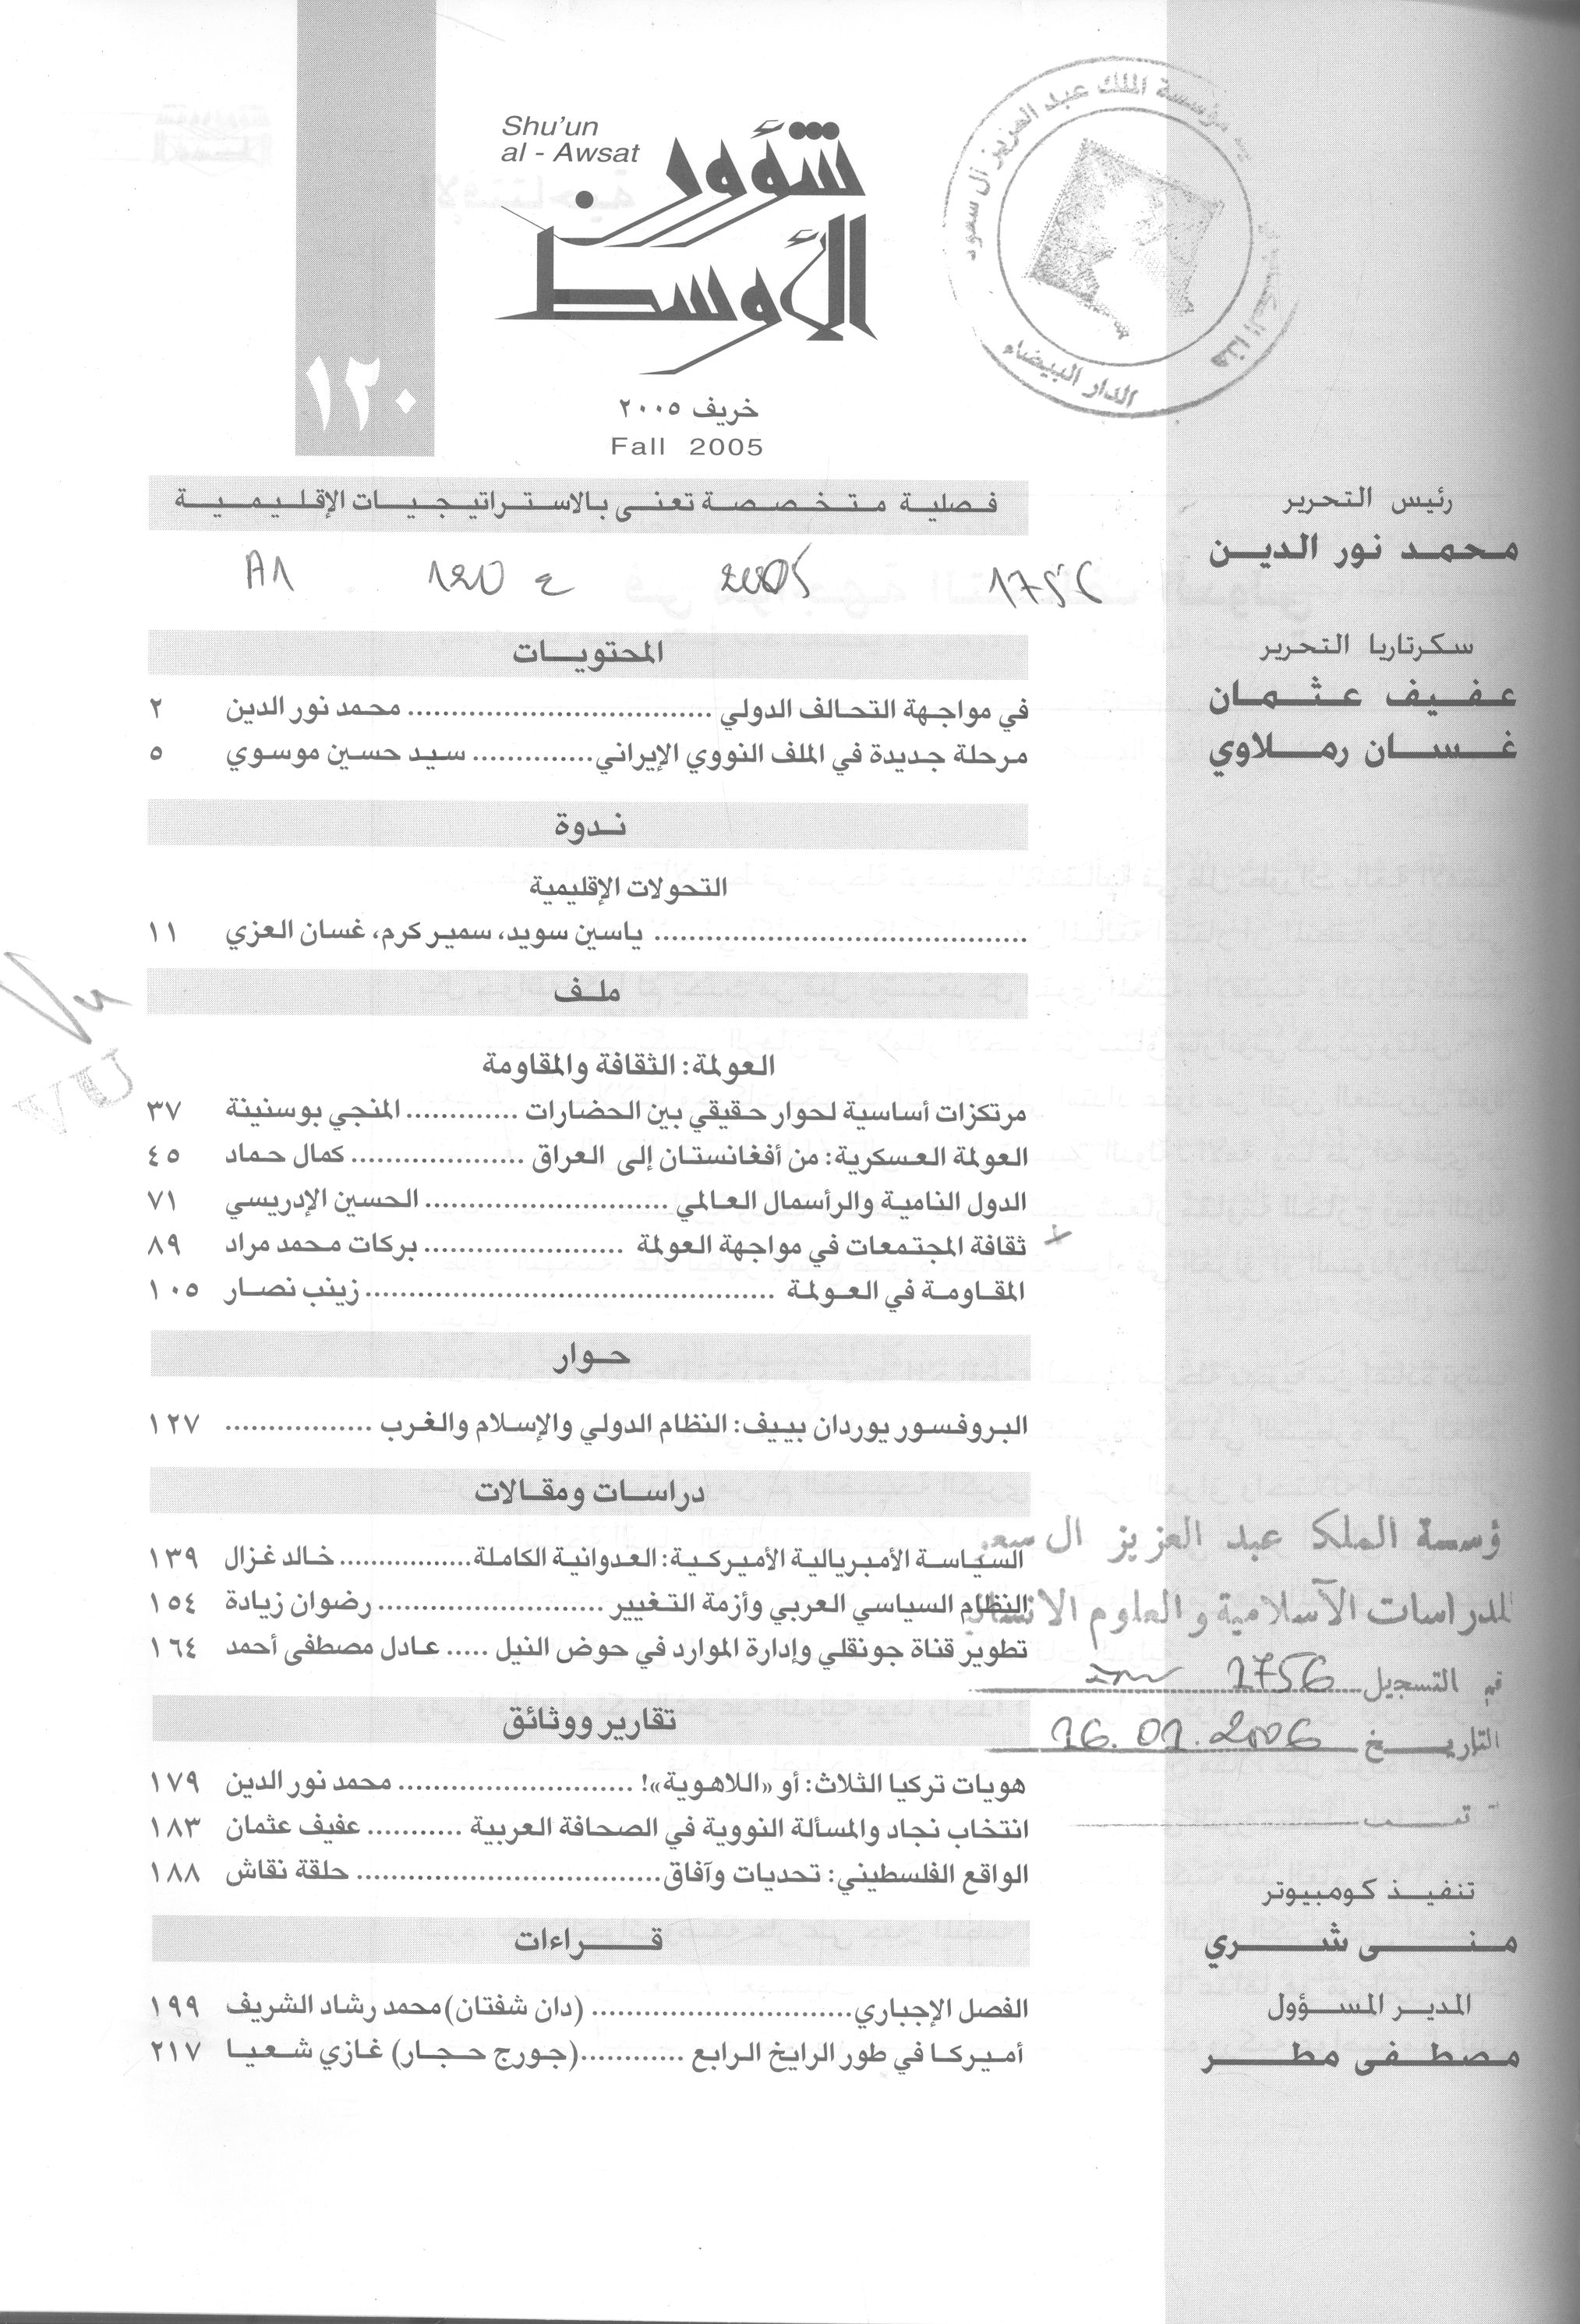 Shu'un
al - Awsat
شؤون
الأوسط
١٢٠
خريف ٢٠٠٥
Fall 2005
فصلية متخصصة تعنى بالاستراتيجيات الإقليمية
A1 120 ع 2005 1756
المحتويات
في مواجهة التحالف الدولي ................................... محمد نور الدين ٢
مرحلة جديدة في الملف النووي الإيراني.............. سيد حسين موسوي ٥
ندوة
التحولات الإقليمية
........................................... ياسين سويد، سمير كرم، غسان العزي ١١
ملف
العولمة: الثقافة والمقاومة
مرتكزات أساسية لحوار حقيقي بين الحضارات ............. المنجي بوسنينة ٣٧
العولمة العسكرية: من أفغانستان إلى العراق .................... كمال حماد ٤٥
الدول النامية والرأسمال العالمي ............................ الحسين الإدريسي ٧١
ثقافة المجتمعات في مواجهة العولمة ....................... بركات محمد مراد ٨٩
المقاومة في العولمة ............................................... زينب نصار ١٠٥
حوار
البروفسور يوردان بييف: النظام الدولي والإسلام والغرب ................. ١٢٧
دراسات ومقالات
السياسة الأمبريالية الأميركية: العدوانية الكاملة............... خالد غزال ١٣٩
النظام السياسي العربي وأزمة التغيير .......................... رضوان زيادة ١٥٤
تطوير قناة جونقلي وإدارة الموارد في حوض النيل ..... عادل مصطفى أحمد ١٦٤
تقارير ووثائق
هويات تركيا الثلاث: أو «اللاهوية»! ........................... محمد نور الدين ١٧٩
انتخاب نجاد والمسألة النووية في الصحافة العربية ........... عفيف عثمان ١٨٣
الواقع الفلسطيني: تحديات وآفاق................................... حلقة نقاش ١٨٨
قراءات
الفصل الإجباري.............................. (دان شفتان) محمد رشاد الشريف ١٩٩
أميركا في طور الرايخ الرابع ............(جورج حجار) غازي شعيا ٢١٧
مؤسسة الملك عبد العزيز آل سعود
الدار البيضاء
رئيس التحرير
محمد نور الدين
سكرتاريا التحرير
عفيف عثمان
غسان رملاوي
ؤسسة الملك عبد العزيز ال سعو
للدراسات الآسلامية والعلوم الانسانية
التسجيل 1756
التاريخ 16.01.2006
تنفيذ كومبيوتر
منى شري
المدير المسؤول
مصطفى مطر
VU